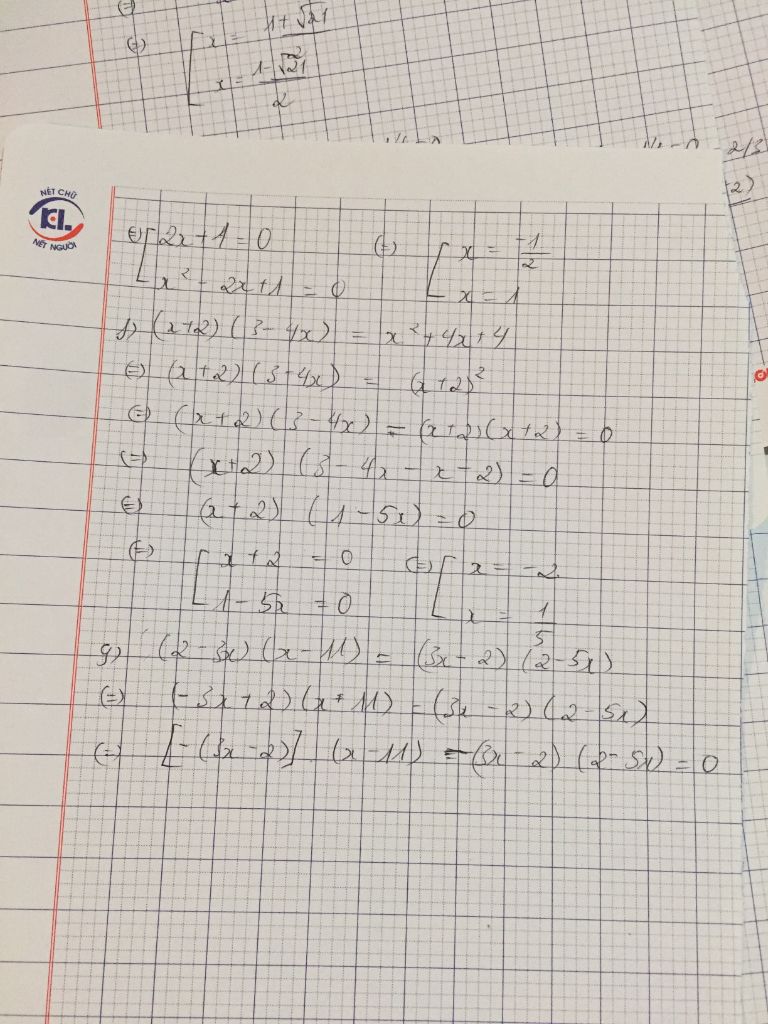 (=)
(=) [ x = 1+√21 / 2
x = 1-√21 / 2
2/3
NÉT CHỮ
KL
NẾT NGƯỜI
(=) [ 2x+1=0 (=) [ x = -1/2
x² - 2x+1 = 0 x = 1
f) (x+2) (3-4x) = x²+4x+4
(=) (x+2) (3-4x) = (x+2)²
(=) (x+2) (3-4x) - (x+2)(x+2) = 0
(=) (x+2) (3-4x-x-2) = 0
(=) (x+2) (1-5x) = 0
(=) [ x+2 = 0 (=) [ x = -2
1-5x = 0 x = 1/5
g) (2-3x) (x-11) = (3x-2) (2-5x)
(=) (-3x+2) (x-11) = (3x-2) (2-5x)
(=) [-(3x-2)] (x-11) - (3x-2) (2-5x) = 0